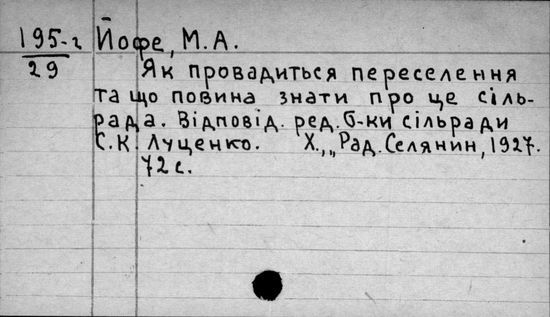 195-г Йофе, М.А.
29
Як провадиться переселення
та що повина знати про це сіль-
рада. Відповід. ред. б-ки сільради
С.К. Луценко. Х., „Рад. Селянин, 1927.
72 с.